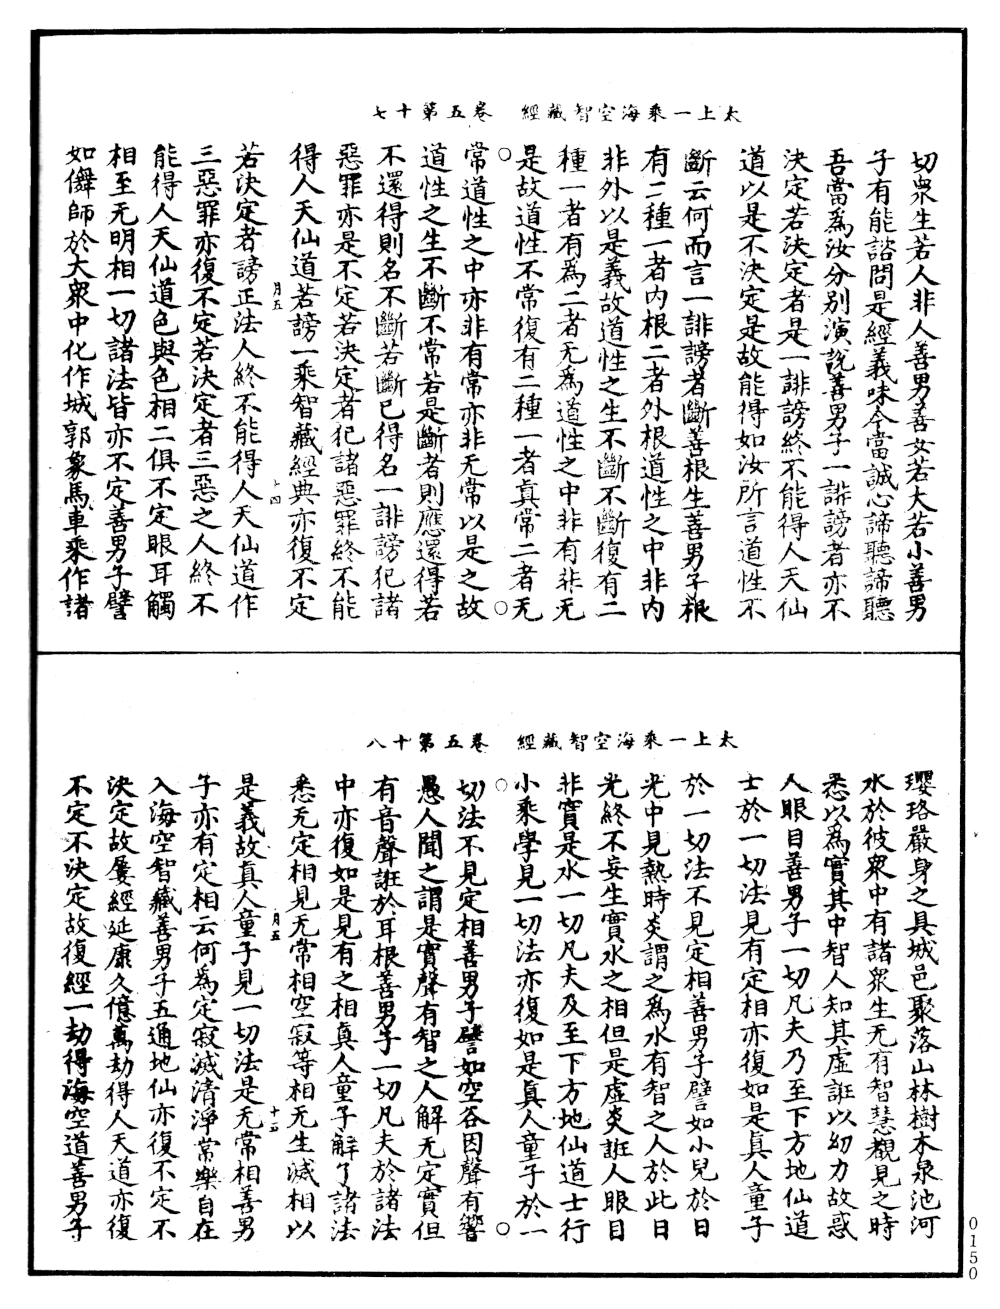 太上一乘海空智藏經　卷五第十七
切衆生若人非人善男善女若大若小善男
子有能諮問是經義味今當誠心諦聽諦聽
吾當爲汝分别演說善男子一誹謗者亦不
決定若決定者是一誹謗終不能得人天仙
道以是不決定是故能得如汝所言道性不
斷云何而言一誹謗者斷善根生善男子根
有二種一者内根二者外根道性之中非内
非外以是義故道性之生不斷不斷復有二
種一者有爲二者无爲道性之中非有非无
是故道性不常復有二種一者真常二者无
常道性之中亦非有常亦非无常以是之故
道性之生不斷不常若是斷者則應還得若
不還得則名不斷若斷已得名一誹謗犯諸
惡罪亦是不定若決定者犯諸惡罪終不能
得人天仙道若謗一乘智藏經典亦復不定
月五
十四
若決定者謗正法人終不能得人天仙道作
三惡罪亦復不定若決定者三惡之人終不
能得人天仙道色與色相二俱不定眼耳觸
相至无明相一切諸法皆亦不定善男子譬
如儛師於大衆中化作城郭象馬車乘作諸
太上一乘海空智藏經　卷五第十八
瓔珞嚴身之具城邑聚落山林樹木泉池河
水於彼衆中有諸衆生无有智慧觀見之時
悉以爲實其中智人知其虛誑以幻力故惑
人眼目善男子一切凡夫乃至下方地仙道
士於一切法見有定相亦復如是真人童子
於一切法不見定相善男子譬如小兒於日
光中見熱時炎謂之爲水有智之人於此日
光終不妄生實水之相但是虛炎誑人眼目
非實是水一切凡夫及至下方地仙道士行
小乘學見一切法亦復如是真人童子於一
切法不見定相善男子譬如空谷因聲有響
愚人聞之謂是實聲有智之人解无定實但
有音聲誑於耳根善男子一切凡夫於諸法
中亦復如是見有之相真人童子解了諸法
悉无定相見无常相空寂等相无生滅相以
月五
十五
是義故真人童子見一切法是无常相善男
子亦有定相云何為定寂滅清淨常樂自在
入海空智藏善男子五通地仙亦復不定不
決定故屢經延康久億萬劫得人天道亦復
不定不決定故復經一劫得海空道善男子
0150